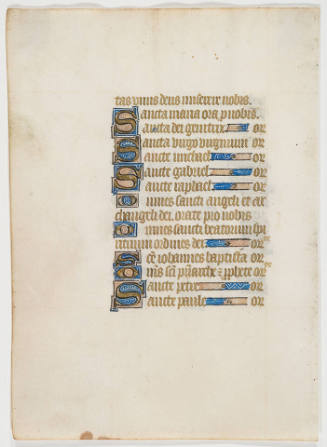 tas unus deus miserere nobis.
Sancta maria ora p nobis.
Sancta dei genitrix or
Sancta virgo virginum or
Sancte michael or
Sancte gabriel or
Sancte raphael or
Omnes sancti angeli et ar
changeli dei orate pro nobis
Omnes sancti beatorum spi
rituum ordines dei or
Sce iohannes baptista or
Oms sci patriarche & pphete or
Sancte petre or
Sancte paule or